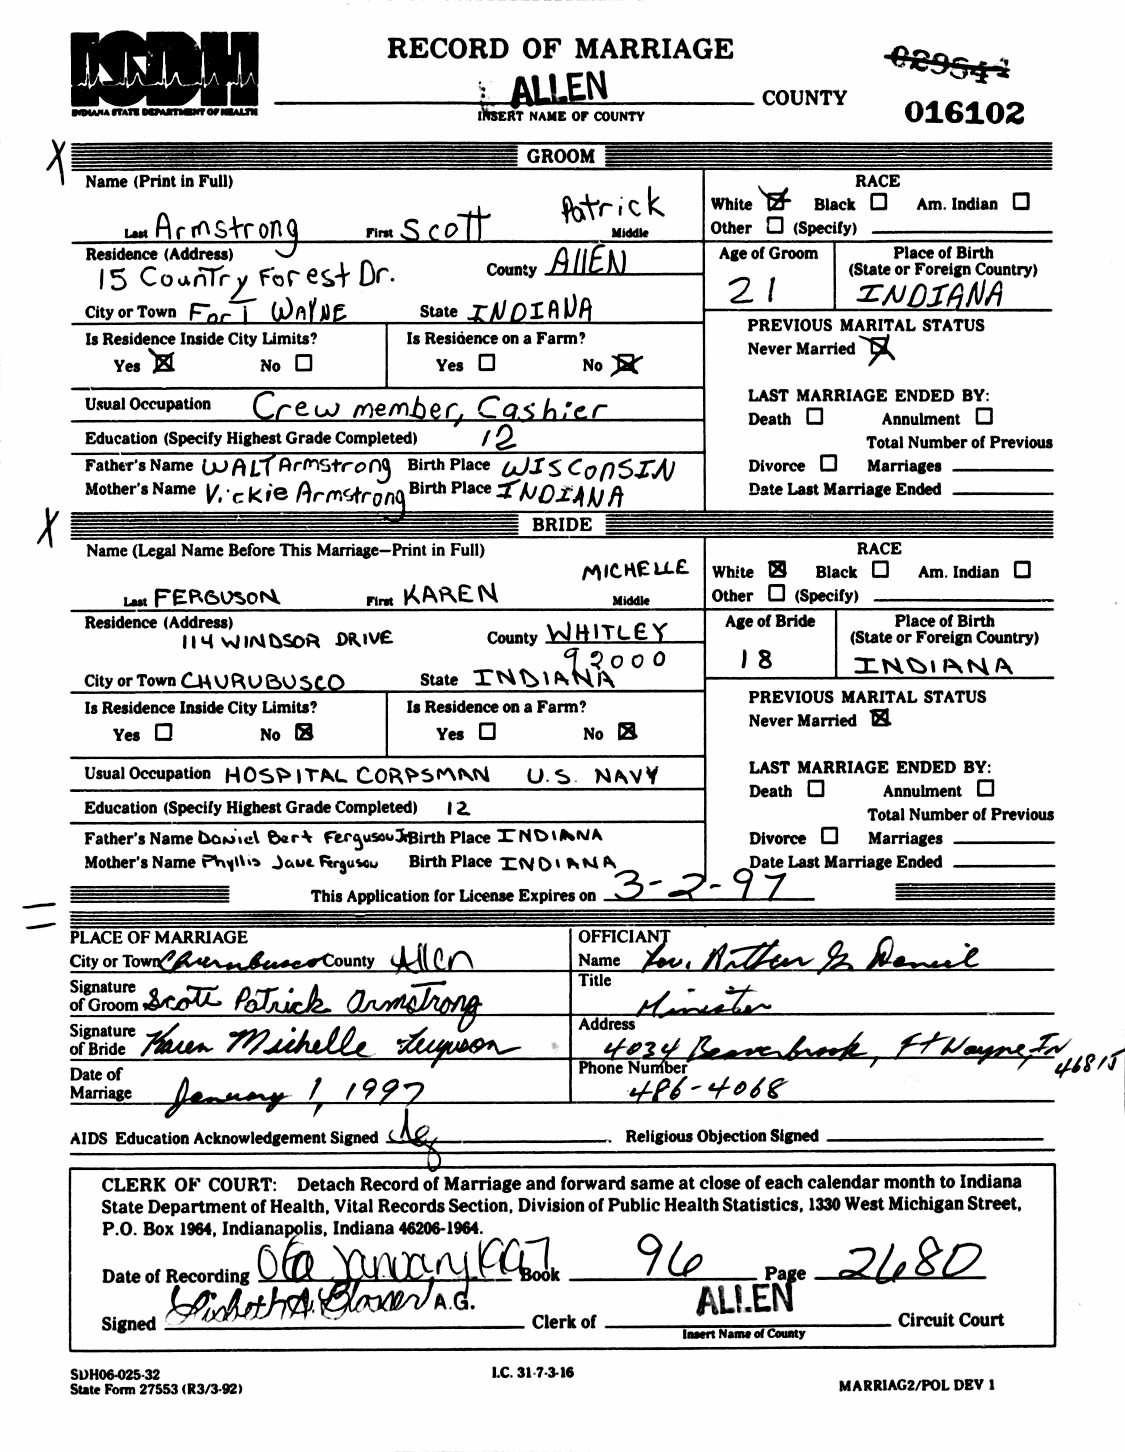 ISDH
INDIANA STATE DEPARTMENT OF HEALTH
RECORD OF MARRIAGE
ALLEN COUNTY
INSERT NAME OF COUNTY
029541
016102
X
GROOM
Name (Print in Full)
Last Armstrong First Scott Patrick Middle
RACE
White ☒ Black ☐ Am. Indian ☐
Other ☐ (Specify)
Residence (Address)
15 Country Forest Dr. County AllEN
City or Town Fort WAYNE State INDIANA
Age of Groom
21
Place of Birth
(State or Foreign Country)
INDIANA
Is Residence Inside City Limits?
Yes ☒ No ☐
Is Residence on a Farm?
Yes ☐ No ☒
PREVIOUS MARITAL STATUS
Never Married ☒
Usual Occupation Crew member, Cashier
Education (Specify Highest Grade Completed) 12
Father's Name WALT Armstrong Birth Place WISCONSIN
Mother's Name Vickie Armstrong Birth Place INDIANA
LAST MARRIAGE ENDED BY:
Death ☐ Annulment ☐
Total Number of Previous
Divorce ☐ Marriages
Date Last Marriage Ended
X
BRIDE
Name (Legal Name Before This Marriage–Print in Full)
Last FERGUSON First KAREN MICHELLE Middle
RACE
White ☒ Black ☐ Am. Indian ☐
Other ☐ (Specify)
Residence (Address)
114 WINDSOR DRIVE County WHITLEY
92000
City or Town CHURUBUSCO State INDIANA
Age of Bride
18
Place of Birth
(State or Foreign Country)
INDIANA
Is Residence Inside City Limits?
Yes ☐ No ☒
Is Residence on a Farm?
Yes ☐ No ☒
PREVIOUS MARITAL STATUS
Never Married ☒
Usual Occupation HOSPITAL CORPSMAN U.S. NAVY
Education (Specify Highest Grade Completed) 12
Father's Name Daniel Bert Ferguson Jr Birth Place INDIANA
Mother's Name Phyllis Jane Ferguson Birth Place INDIANA
LAST MARRIAGE ENDED BY:
Death ☐ Annulment ☐
Total Number of Previous
Divorce ☐ Marriages
Date Last Marriage Ended
This Application for License Expires on 3-2-97
PLACE OF MARRIAGE
City or Town Churubusco County Allen
Signature
of Groom Scott Patrick Armstrong
Signature
of Bride Karen Michelle Ferguson
Date of
Marriage January 1, 1997
OFFICIANT
Name Rev. Arthur G. Daniel
Title
Minister
Address
4034 Beaverbrook, Ft Wayne, In 46815
Phone Number
486-4068
AIDS Education Acknowledgement Signed
Religious Objection Signed
CLERK OF COURT: Detach Record of Marriage and forward same at close of each calendar month to Indiana
State Department of Health, Vital Records Section, Division of Public Health Statistics, 1330 West Michigan Street,
P.O. Box 1964, Indianapolis, Indiana 46206-1964.
Date of Recording January 1997 Book 96 Page 2680
Signed A.G. Clerk of ALLEN Circuit Court
Insert Name of County
SDH06-025-32
State Form 27553 (R3/3-92)
I.C. 31-7-3-16
MARRIAG2/POL DEV 1